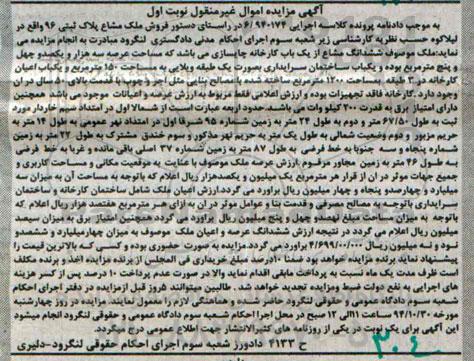 آگهی مزایده اموال غیرمنقول نوبت اول
به موجب دادنامه پرونده کلاسه اجرایی ۶/۹۴۰۱۷۴ در راستای دستور فروش ملک مشاع پلاک ثبتی ۹۶ واقع در
لیلاکوه حسب نظریه کارشناسی زیر شعبه سوم اجرای احکام مدنی دادگستری لنگرود مبادرت به انجام مزایده می
نماید:ملوک موصوف ششدانگ مشاع از یک باب کارخانه چایسازی می باشد که مساحت عرصه سه هزار و یکصدو چهل
و پنج مترمربع بوده و یکباب ساختمان سرایداری بصورت یک طبقه ویلایی به مساحت ۱۵۰ مترمربع و یکباب اعیان
کارخانه در ۳ طبقه به مساحت ۱۲۰۰ مترمربع ساخته شده با مصالح بنایی مثل آجر و چوب با قدمت بالای ۴۰ سال در آن
وجود دارد. کارخانه فاقد تجهیزات بوده و ارزش اعلامی فقط مربوط به ارزش عرصه و اعیانات موجود می باشد. همچنین
دارای امتیاز برق به قدرت ۲۰۰ کیلو وات می باشد.حدود اربعه عبارت است از شمالا اول در امتداد نهر خاردار مورد
ثبت به طول ۶۷/۵۰ متر و دوم به طول ۲۴ متر به زمین شماره ۹۵ شرقا اول در امتداد نهر عمومی به طول ۱۴ متر به
حریم مزبور دوم وضعیت شمالی به طول یک متر به حریم نهر مذکور و سوم خندق مشترک به طول ۲۲ متر به زمین
شماره پنجاه و سه جنوبا به خط فرضی به طول ۸۷ متر به زمین شماره ۳۷ اصلی باقی مانده و غربا به خط فرضی
به طول ۴۶ متر به زمین مجاور مرقوم ارزش عرصه ملک موصوف با عنایت به موقعیت مکانی و مساحت کاربری و
جمیع جهات موثر در آن از قرار هر مترمربع یک میلیون و یکصدهزار ریال اعلام که باتوجه به مساحت آن به میزان سه
میلیارد و چهارصدو پنجاه و چهار میلیون ریال برآورد می گردد ارزش اعیان ملک شامل ساختمان کارخانه و ساختمان
سرایداری باتوجه به مصالح مصرفی و قدمت بنا و عوامل موثر در آن به ازای هر مترمربع هفتصد هزار ریال اعلام که
باتوجه به میزان مساحت مبلغ نهصد و چهل و پنج میلیون ریال برآورد می گردد همچنین امتیاز برق به میزان سیصد
میلیون ریال اعلام می گردد در نتیجه ارزش ششدانگ عرصه و اعیان ملک موصوف به میزان چهارمیلیارد و ششصدو
نود و نه میلیون ریال ۴/۶۹۹/۰۰۰/۰۰۰ برآورد می گردد.مزایده به صورت حضوری بوده و کسی که بالاترین قیمت را
پیشنهاد نماید برنده مزایده خواهد بود ضمنا ۱۰ درصد مبلغ خریداری فی المجلس از برنده مزایده اخذ و برنده مکلف
است ظرف مدت یک ماه نسبت به پرداخت مابقی اقدام نماید والا در صورت عدم پرداخت ۱۰ درصد پس از کسر هزینه
های مزایده به نفع دولت ضبط ومزایده تجدید خواهد شد. طالبین میتوانند ۵روز قبل ازمزایده در دفتر اجرای احکام
شعبه سوم دادگاه عمومی حقوقی لنگرود حاضر شده و هماهنگی لازم را معمول نمایند مزایده در روز چهارشنبه
مورخه ۹۴/۱۰/۳۰ ساعت ۱۱الی ۱۲ صبح در محل اجرا احکام شعبه سوم دادگاه عمومی و حقوقی لنگرود انجام میشود
این آگهی برای یک نوبت در یکی از روزنامه های کثیرالانتشار جهت اطلاع عمومی درج میگردد.
ح ۴۱۳۳ دادورز شعبه سوم اجرای احکام حقوقی لنگرود-دلیری